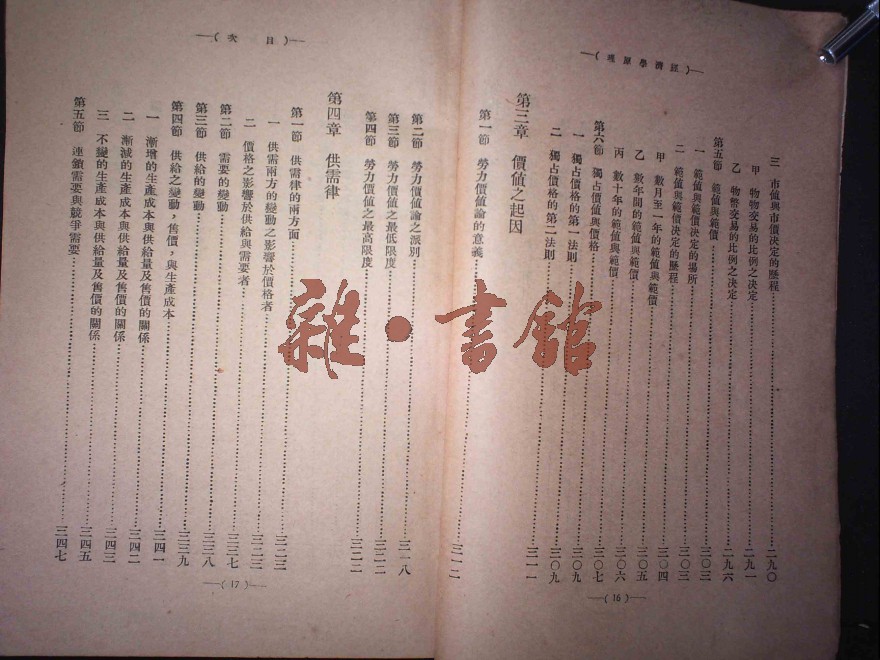 —(經濟學原理)—
三 市值與市價決定的歷程……二九〇
甲 物物交易的比例之決定……二九一
乙 物幣交易的比例之決定……二九六
第五節 範值與範價……三〇三
一 範值與範價決定的場所……
二 範值與範價決定的歷程……三〇三
甲 數月至一年的範值與範價……三〇四
乙 數年間的範值與範價……三〇五
丙 數十年的範值與範價……三〇六
第六節 獨占價值與價格……三〇七
一 獨占價格的第一法則……三〇九
二 獨占價格的第二法則……三〇九
第三章 價值之起因……三一一
第一節 勞力價值論的意義……三一二
—(16)—
—(目次)—
第二節 勞力價值論之派別……三一八
第三節 勞力價值之最低限度……三二二
第四節 勞力價值之最高限度……三二二
第四章 供需律
第一節 供需律的兩方面……三二三
一 供需兩方的變動之影響於價格者……三二三
二 價格之影響於供給與需要者……三三七
第二節 需要的變動……三三七
第三節 供給的變動……三三八
第四節 供給之變動,售價,與生產成本……三三九
一 漸增的生產成本與供給量及售價的關係……三四一
二 漸減的生產成本與供給量及售價的關係……三四二
三 不變的生產成本與供給量及售價的關係……三四五
第五節 連鎖需要與競爭需要……三四七
—(17)—
雜·書館